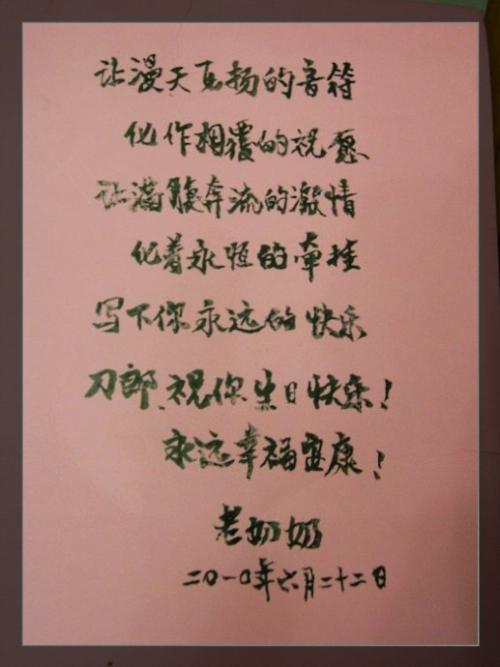 让漫天飞扬的音符
化作相覆的祝愿
让满腹奔流的激情
化着永恒的牵挂
写下你永远的快乐
刀郎、祝你生日快乐!
永远幸福康!
老奶奶
二0一0年六月二十二日